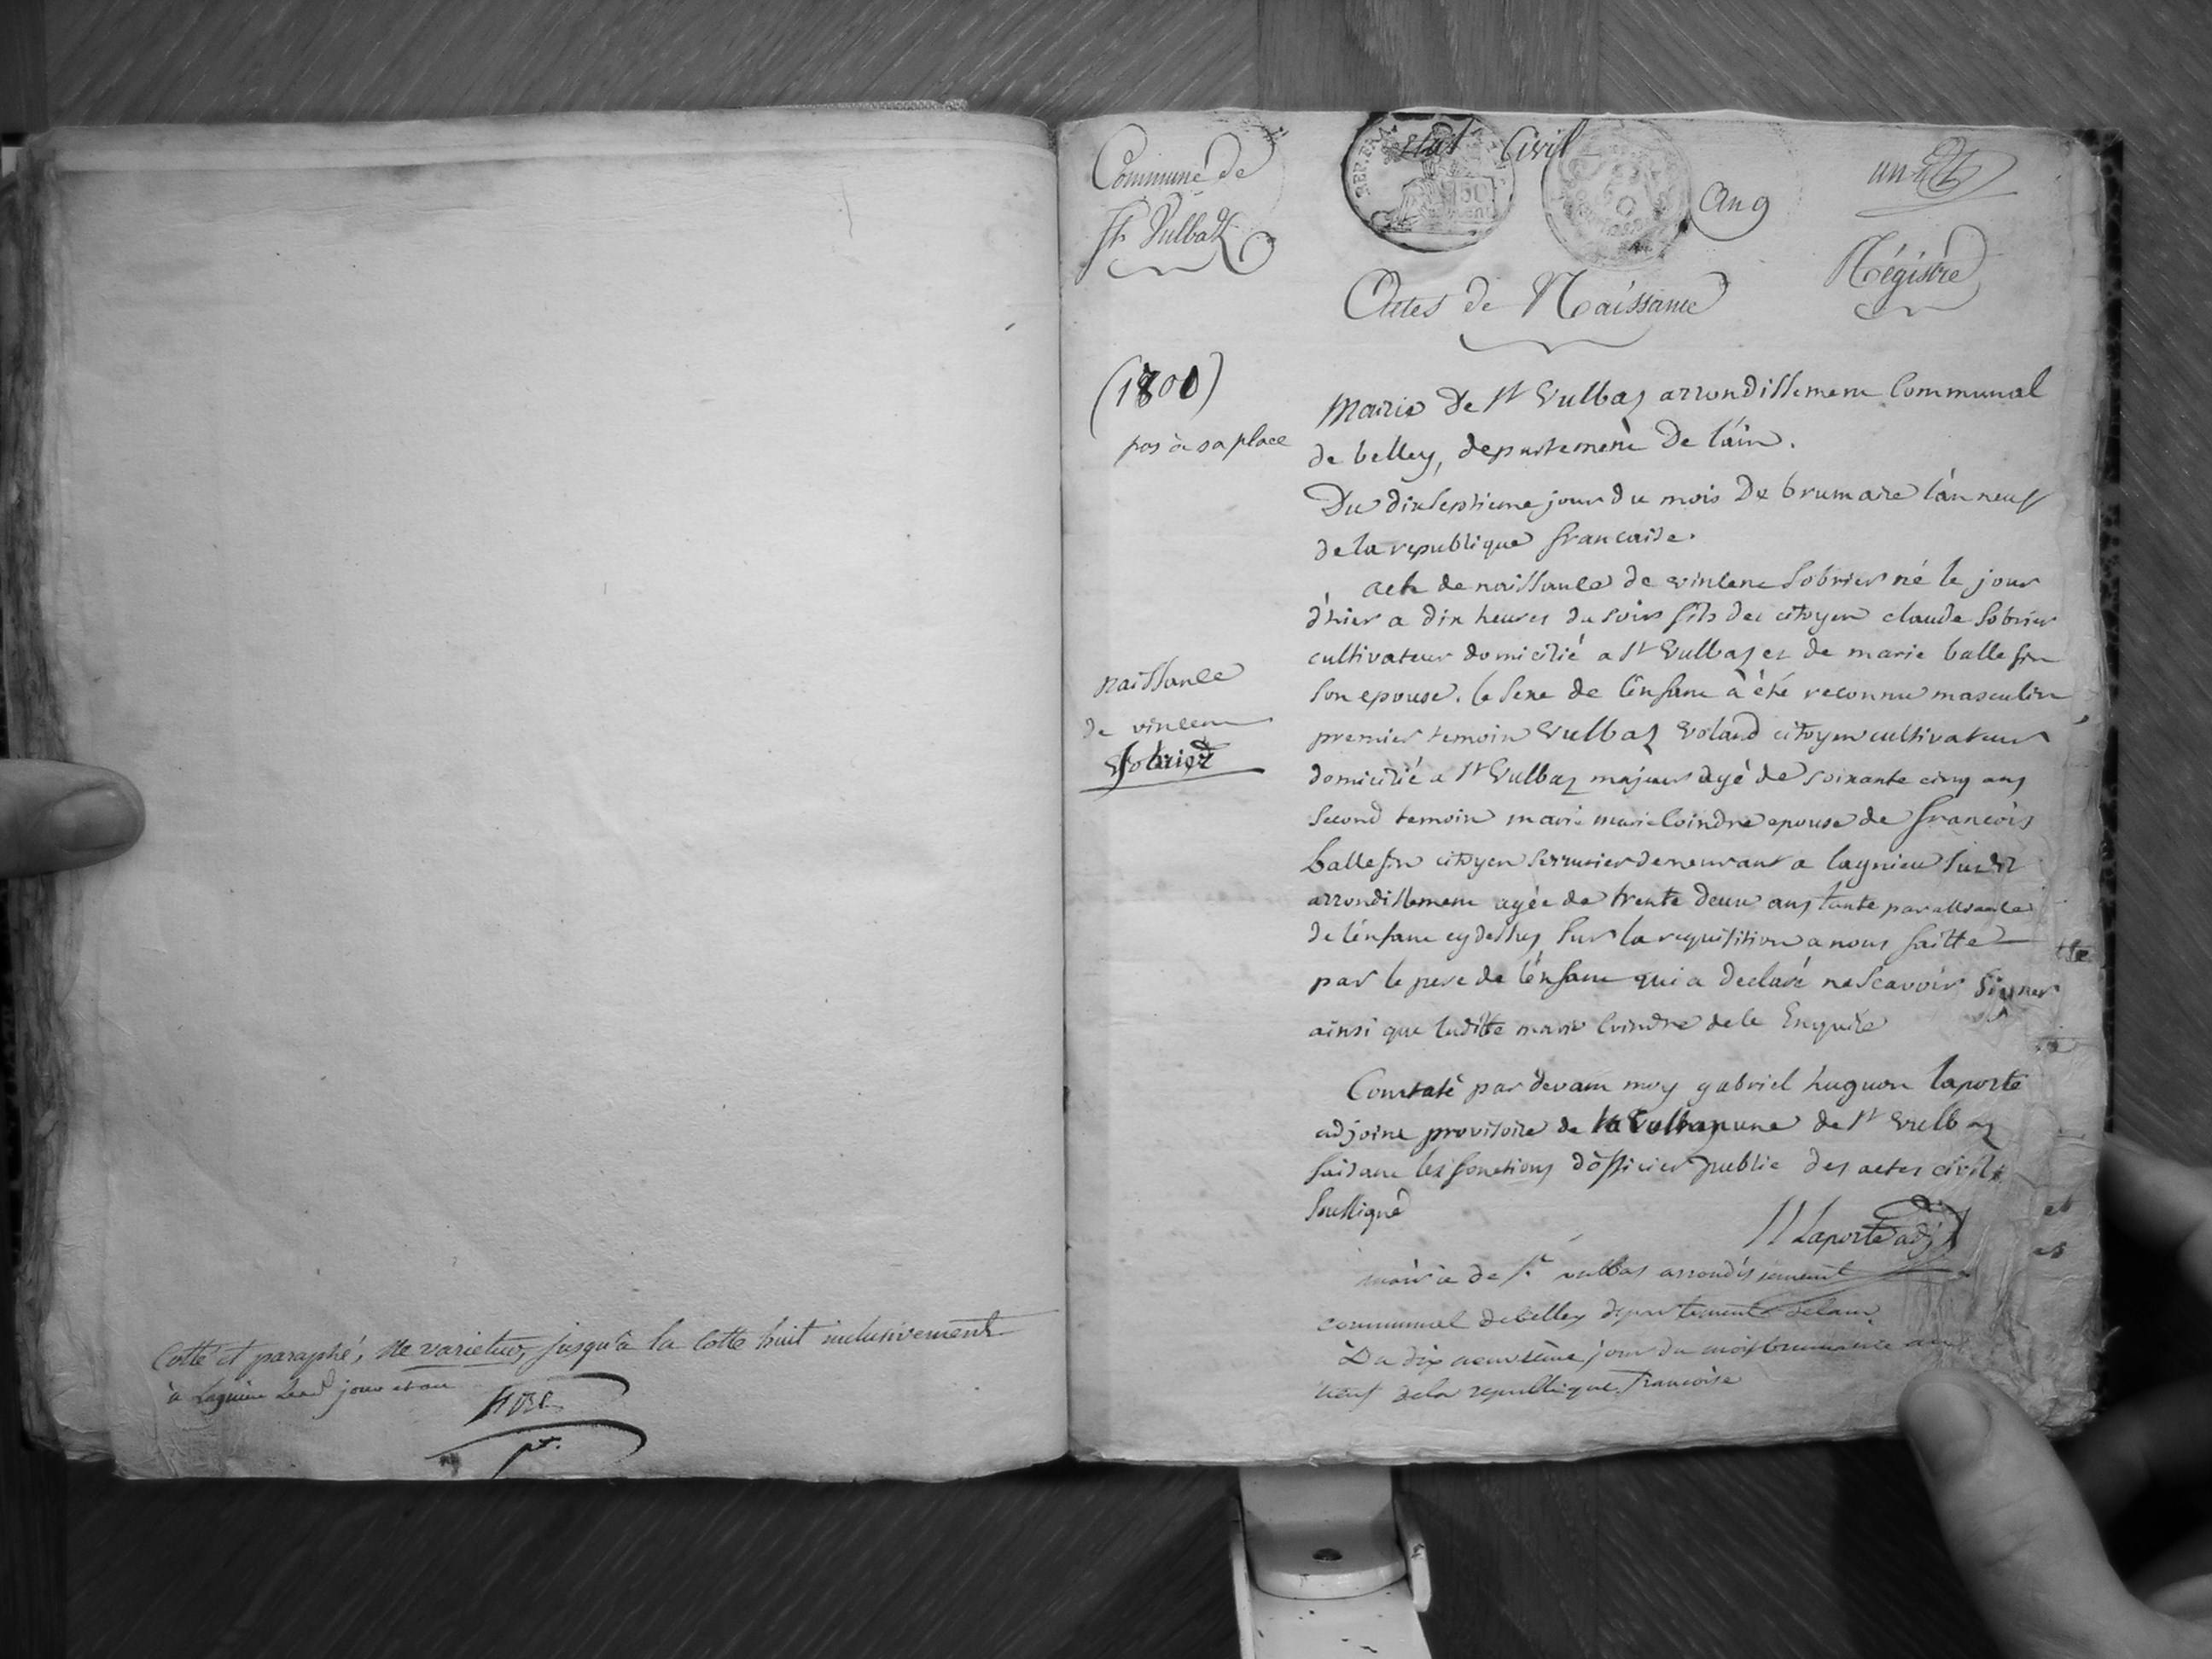 Cotté et paraphé, Ne varietur, jusqu'à la Cotte huit inclusivement
à Lagnieu jour et an
Commune de
St. Vulbaz
Etat Civil
REP. FRA.
50
An 9
un
Régistre
Actes de Naissance
(1800)
pas à sa place
Mairie De St Vulbaz arrondissement Communal
de belley, departement De l'ain.
Du dixseptieme jour du mois De brumaire l'an neuf
de la republique francaise.
acte de naissance de vincent Sobrier né le jour
d'hier a dix heures du soir fils de citoyen claude Sobrier
cultivateur domicilié a St Vulbaz et de marie ballefin
son epouse. le sexe de l'enfant à été reconnu masculin
premier temoin Vulbaz Voland citoyen cultivateur
domicilié a St Vulbaz majeur agé de soixante cinq ans
second temoin marie Coindre epouse de francois
ballefin citoyen serrurier demeurant a lagnieu susdit
arrondissement agée de trente deux ans tante par alliance
de l'enfant cy dessus, sur la requisition a nous faitte
par le pere de l'enfant qui a declaré ne scavoir signer
ainsi que laditte marie Coindre de ce Enquise
naissance
de vincent
Sobrier
Constaté par devant moy gabriel hugon laporte
adjoint provisoire de la Commune de St Vulbaz
faisant les fonctions d'officier public des actes civils
soussigné
Laporte adj
mairie de St. vulbas arrondissement
communal de belley departement de lain
Du dix neuvième jour du mois brumaire an
neuf de la republique francoise